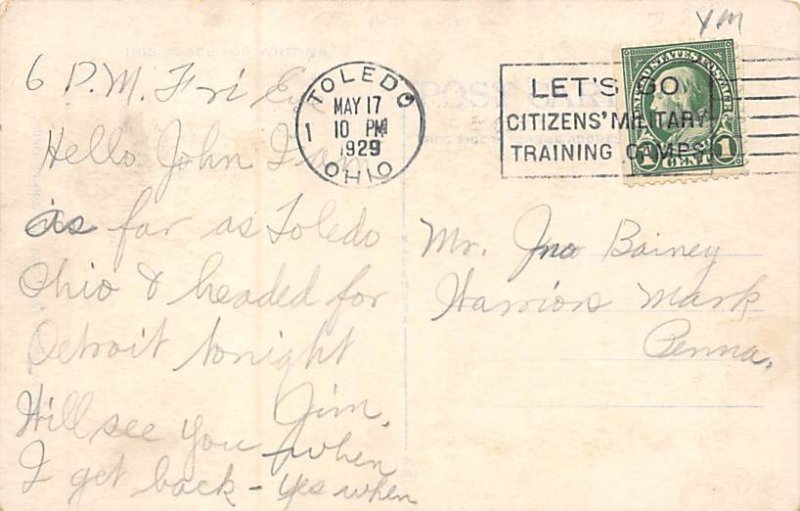 YM
THIS SPACE FOR WRITING
POST CARD
6 P.M. Fri Eve
Hello John I am
as far as Toledo
Ohio & headed for
Detroit tonight
Jim.
Will see you when
I get back - yes when
TOLEDO
MAY 17
1 10 PM
1929
OHIO
LET'S GO
CITIZENS' MILITARY
TRAINING CAMPS
UNITED STATES POSTAGE
1 CENT 1
Mr. Jno Bainey
Harrions Mark
Penna.